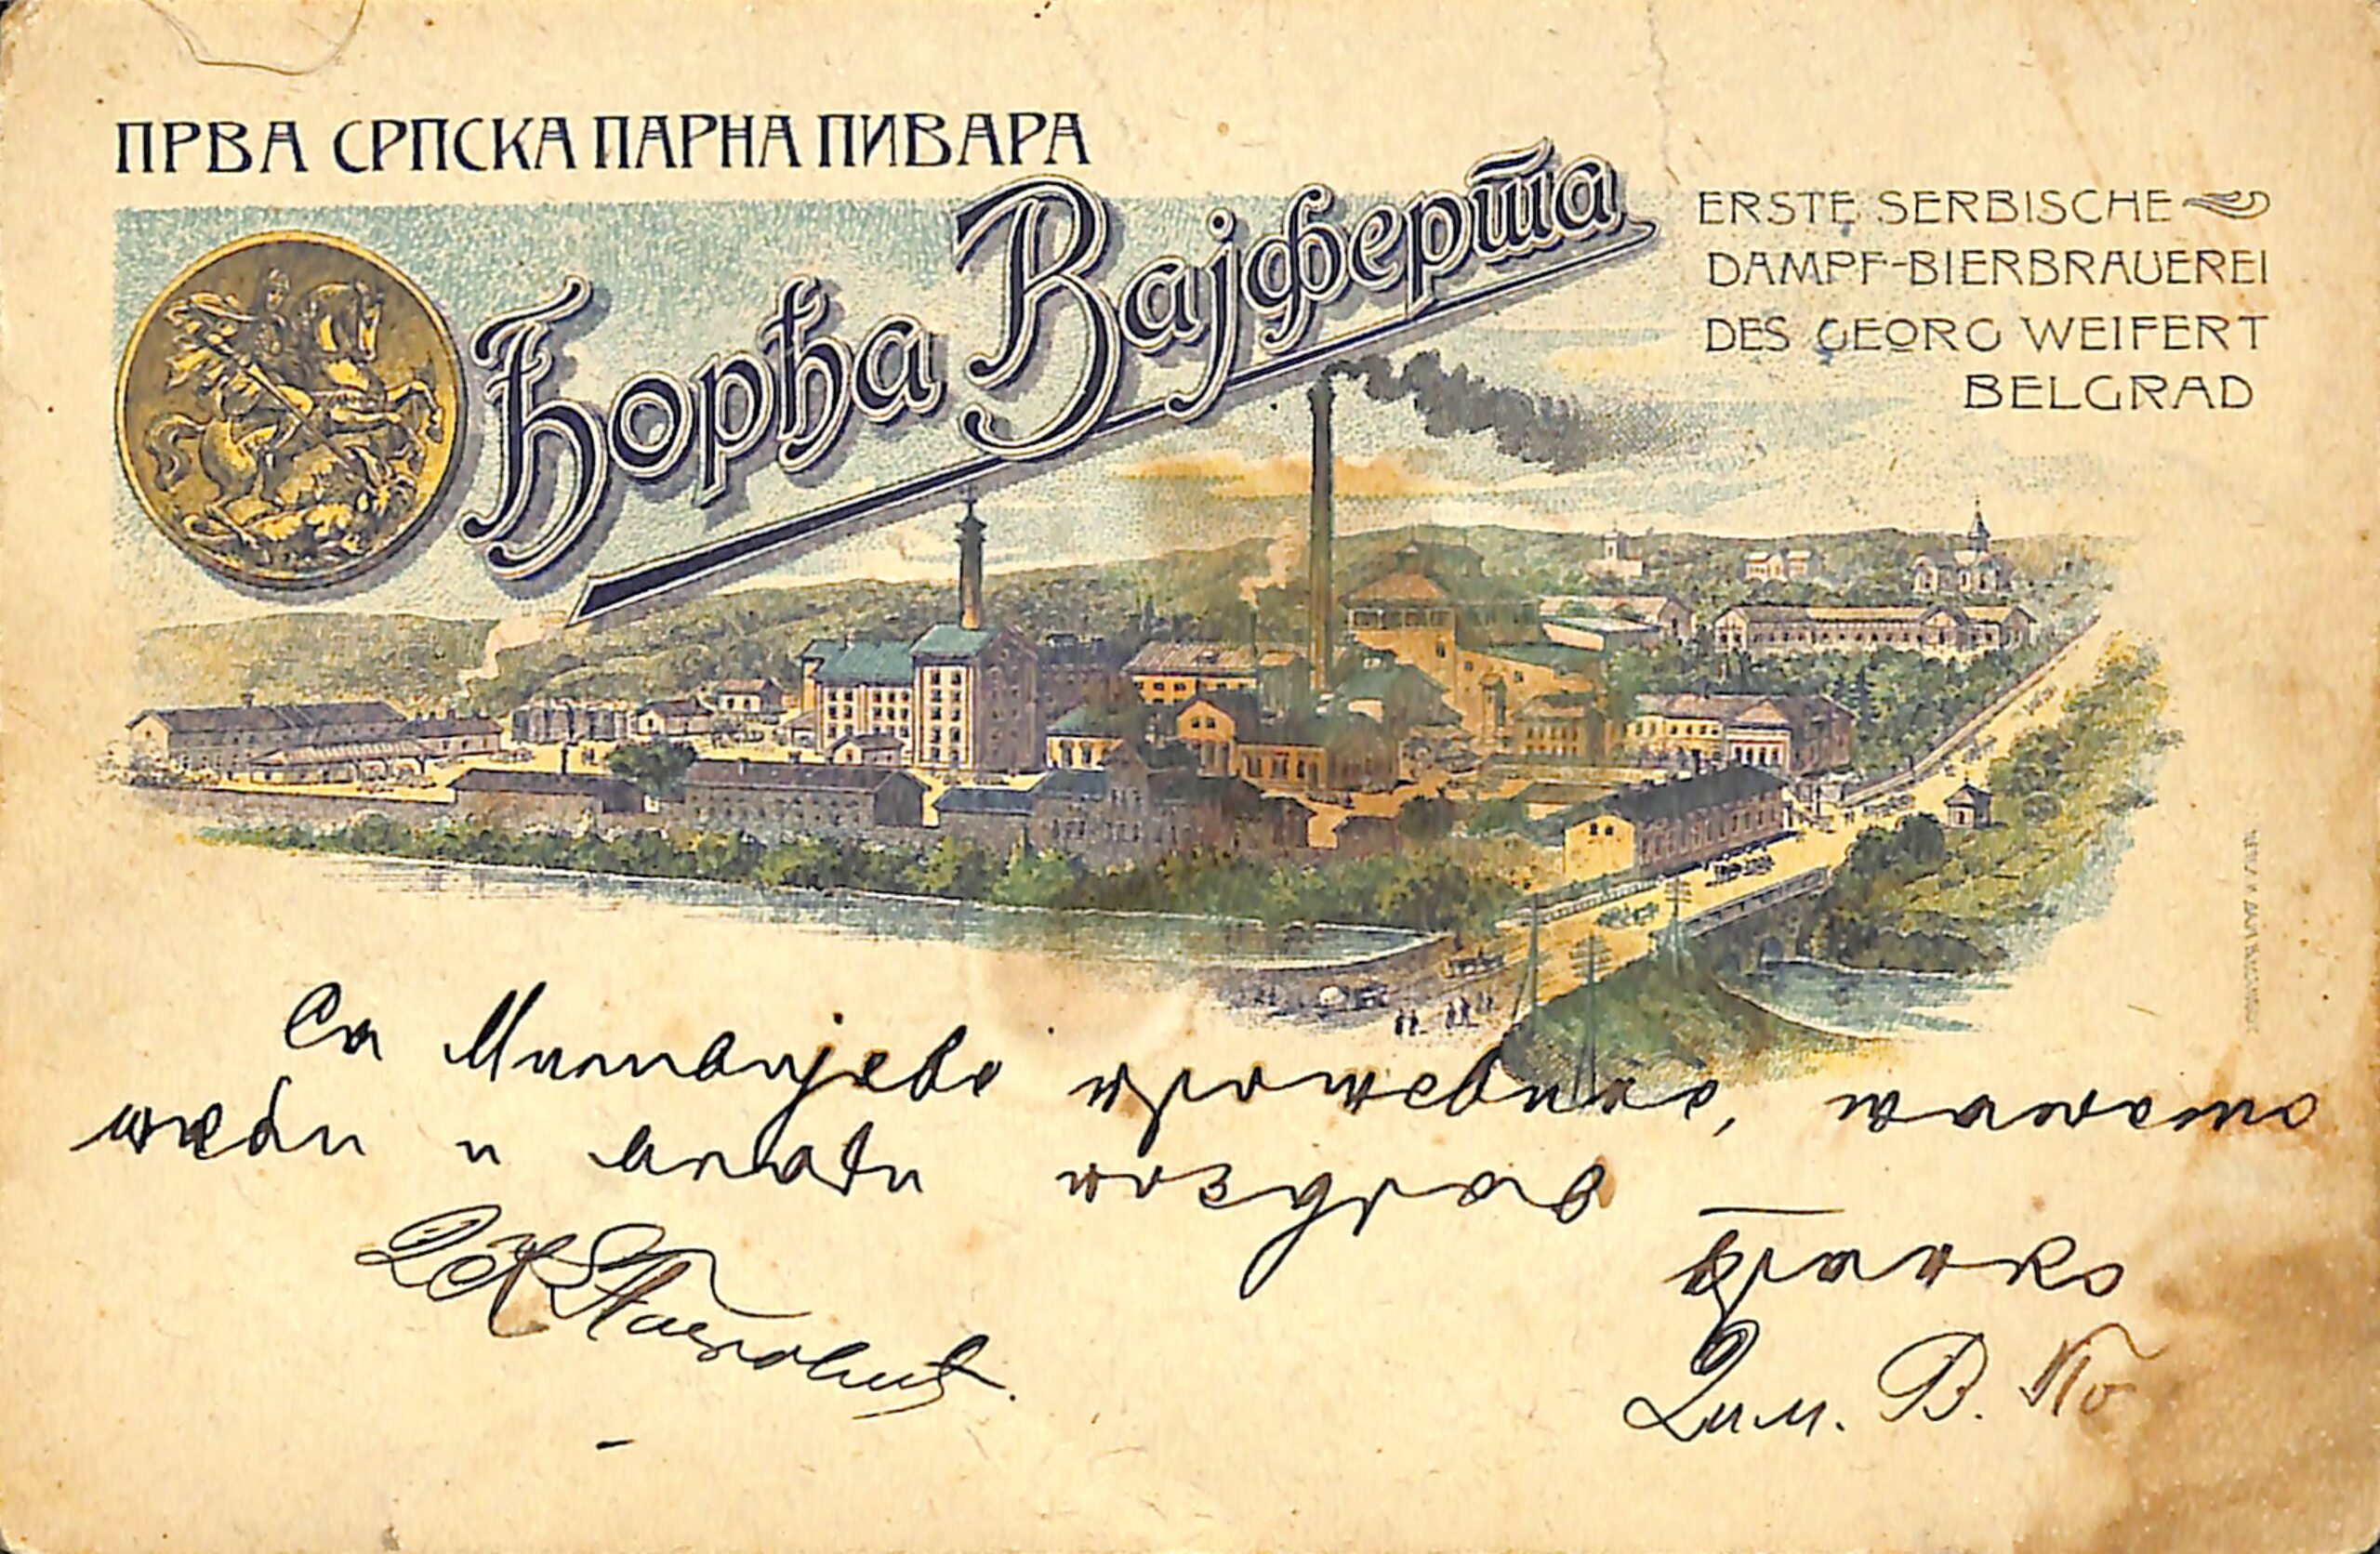 ПРВА СРПСКА ПАРНА ПИВАРА
Ђорђа Вајферта
ERSTE SERBISCHE
DAMPF-BIERBRAUEREI
DES GEORG WEIFERT
BELGRAD
Са шаљемо
теби и Влади поздрав
Бранко
Дим. В. По